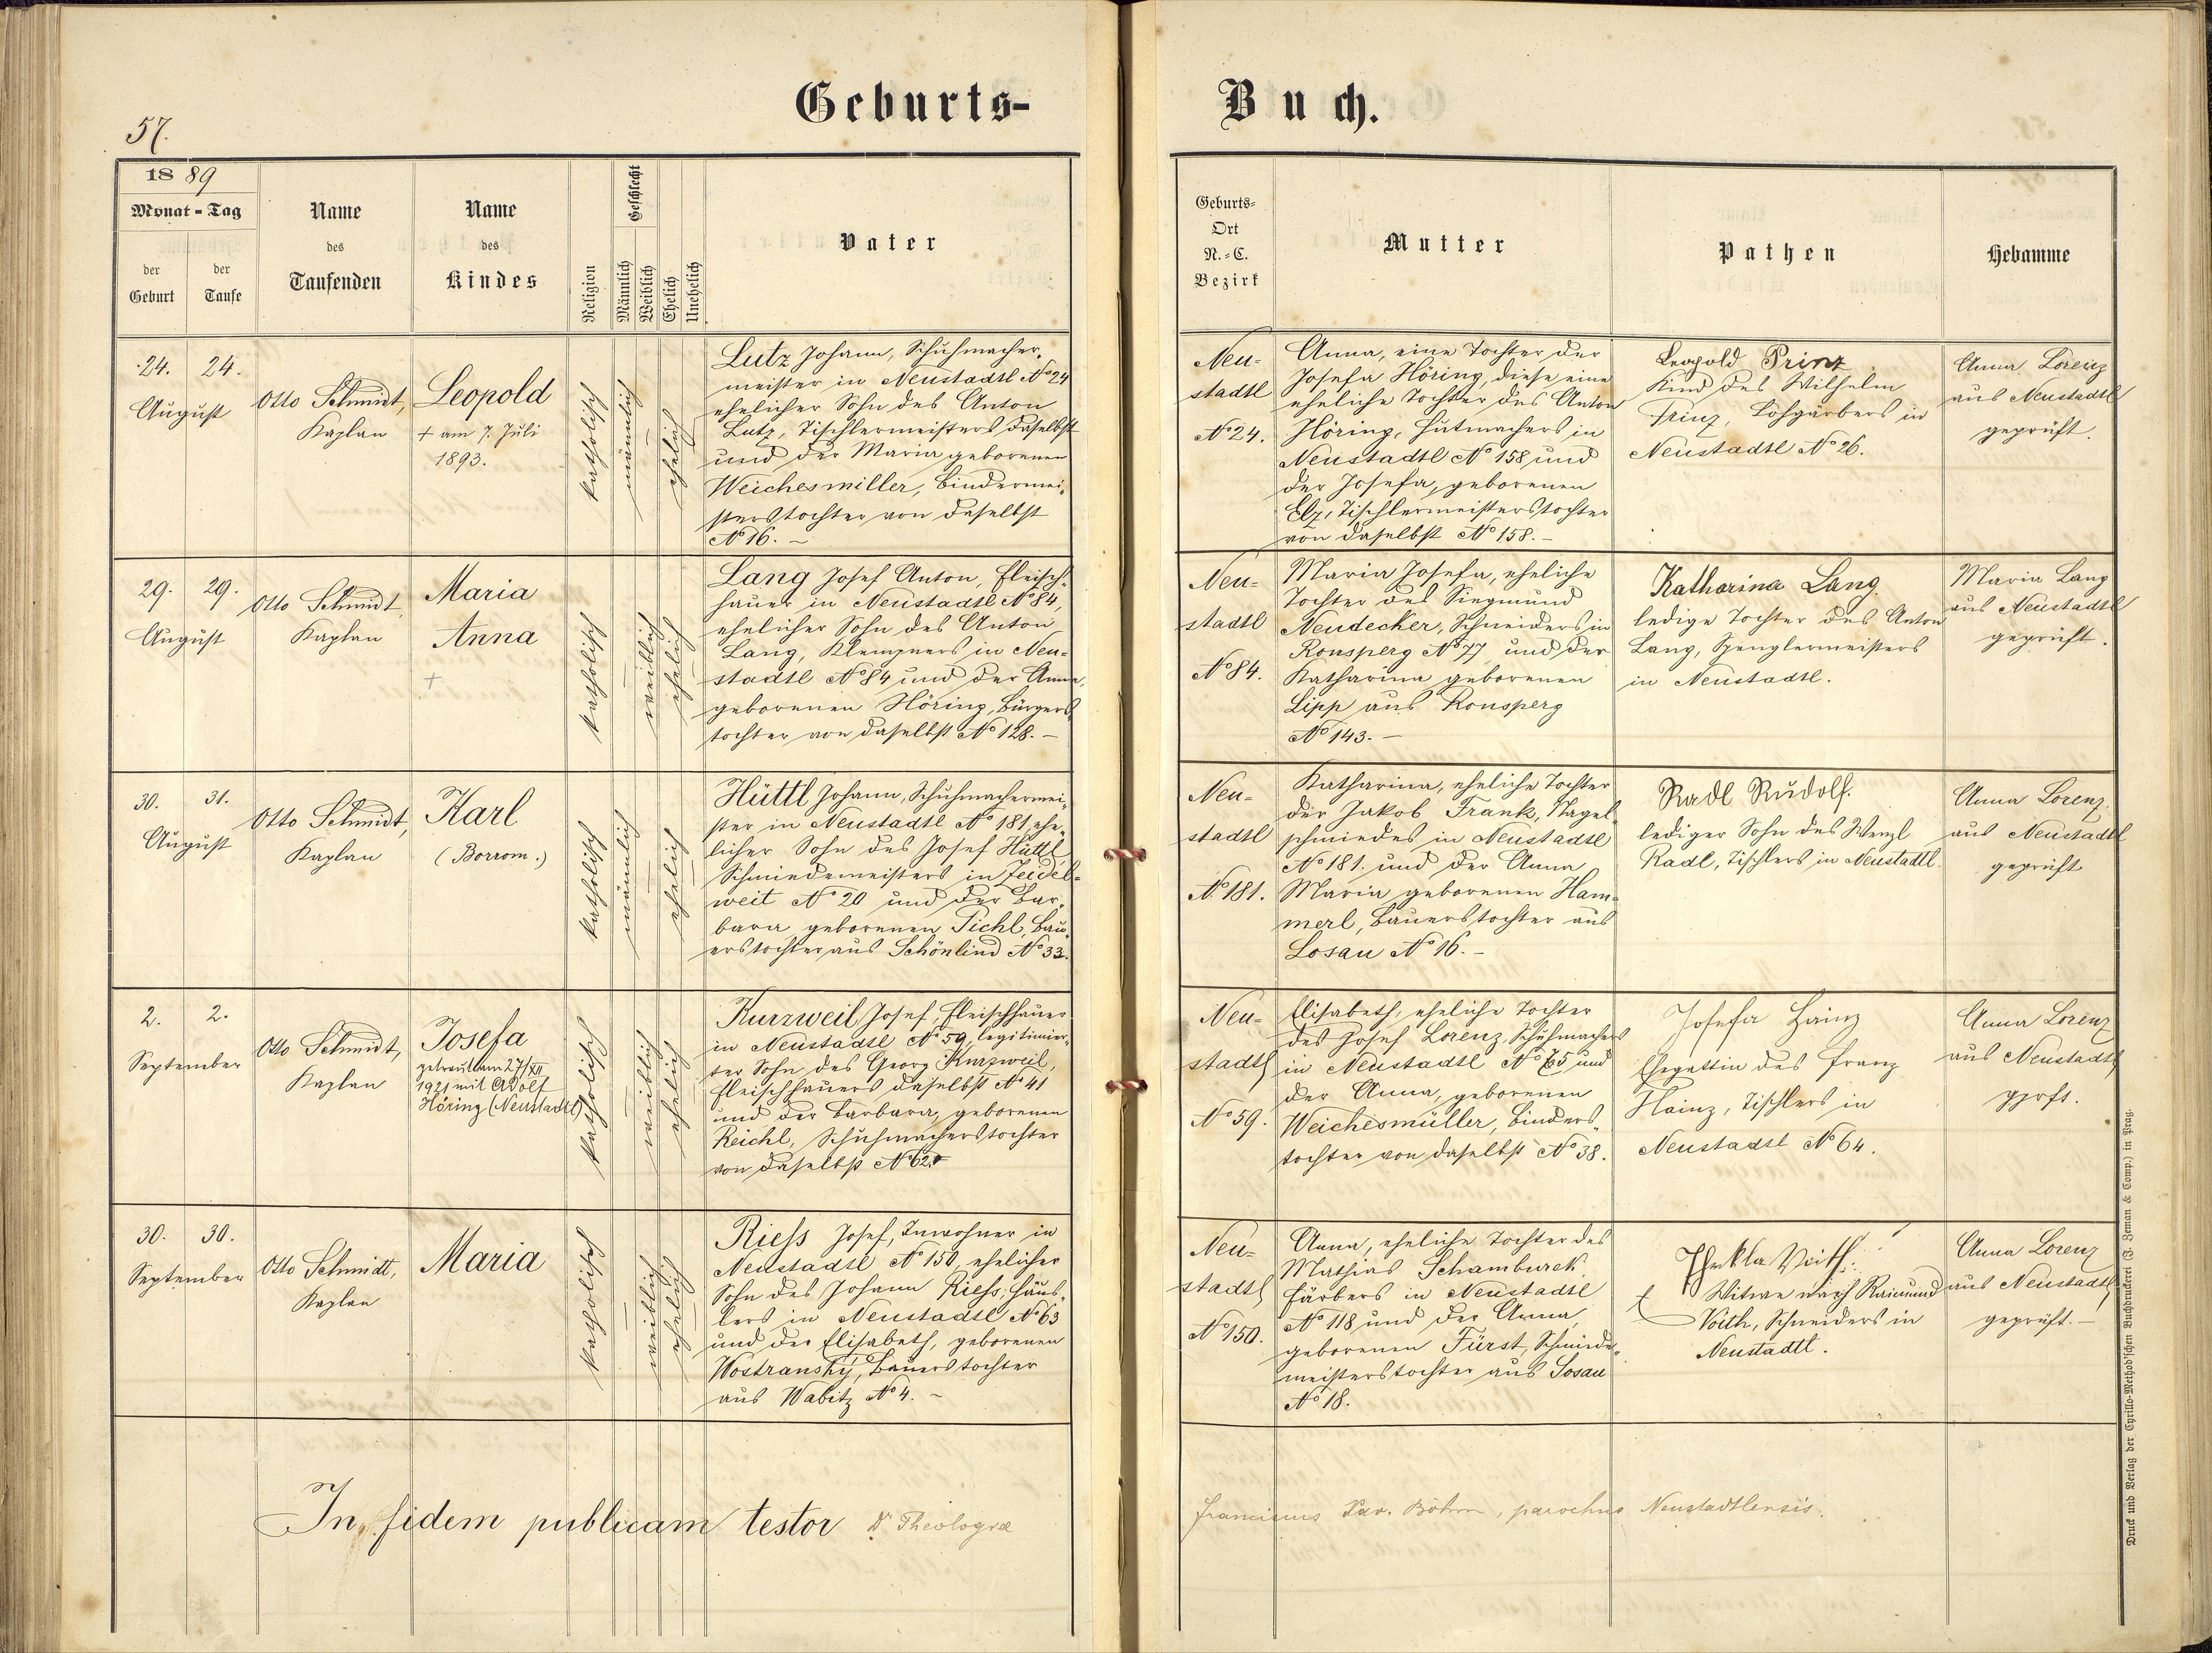 Geburts-
Buch.
57.
1889
Monat-Tag
der Geburt
der Taufe
Name des Taufenden
Name des Kindes
Religion
Geschlecht
Männlich
Weiblich
Ehelich
Unehelich
Vater
Geburts-
Ort
N.-C.
Bezirk
Mutter
Pathen
Hebamme
24. 24.
August
Otto Schmidt,
Kaplan
Leopold
+ am 7. Juli
1893.
katholisch
männlich
ehelich
Lutz Johann, Schuhmacher-
meister in Neustadtl No 24
ehelicher Sohn des Anton
Lutz, Tischlermeisters daselbst
und der Maria geborenen
Weichesmiller, Bindermei-
sterstochter von daselbst
No 16. –
Neu-
stadtl
No 24.
Anna, eine Tochter der
Josefa Höring, diese eine
eheliche Tochter des Anton
Höring, Hutmachers in
Neustadtl No 158 und
der Josefa, geborenen
Elz, Tischlermeisterstochter
von daselbst No 158. –
Leopold Prinz
Kind des Wilhelm
Prinz, Lohgärbers in
Neustadtl No 26.
Anna Lorenz
aus Neustadtl
geprüft.
29. 29.
August
Otto Schmidt,
Kaplan
Maria
Anna
+
katholisch
weiblich
ehelich
Lang Josef Anton, Fleisch-
hauer in Neustadtl No 84,
ehelicher Sohn des Anton
Lang, Klempners in Neu-
stadtl No 84 und der Anna,
geborenen Höring, Bürgers-
tochter von daselbst No 128. –
Neu-
stadtl
No 84.
Maria Josefa, eheliche
Tochter des Siegmund
Neudecker, Schneiders in
Ronsperg No 77, und der
Katharina geborenen
Lipp aus Ronsperg
No 143. –
Katharina Lang
ledige Tochter des Anton
Lang, Spenglermeisters
in Neustadtl.
Maria Lang
aus Neustadtl
geprüft.
30. 31.
August
Otto Schmidt,
Kaplan
Karl
(Borrom.)
katholisch
männlich
ehelich
Hüttl Johann, Schuhmachermei-
ster in Neustadtl No 181 ehe-
licher Sohn des Josef Hüttl,
Schmiedemeisters in Zeidel-
weit No 20 und der Bar-
bara geborenen Pichl, Bau-
erstochter aus Schönlind No 33.
Neu-
stadtl
No 181.
Katharina, eheliche Tochter
der Jakob Frank, Nagel-
schmiedes in Neustadtl
No 181. und der Anna
Maria geborenen Ham-
merl, Bauerstochter aus
Losau No 16. –
Radl Rudolf.
lediger Sohn des Wenzl
Radl, Tischlers in Neustadtl
Anna Lorenz,
aus Neustadtl
geprüft
2. 2.
September
Otto Schmidt,
Kaplan
Josefa
getraut am 27/XII
1921 mit Adolf
Höring (Neustadtl)
katholisch
weiblich
ehelich
Kurzweil Josef, Fleischhauer
in Neustadtl No 59, legitimier-
ter Sohn des Georg Kurzweil,
Fleischhauers daselbst No 41
und der Barbara, geborenen
Reichl, Schuhmacherstochter
von daselbst No 62.
Neu-
stadtl
No 59.
Elisabeth, eheliche Tochter
des Josef Lorenz, Schuhmachers
in Neustadtl No 65 und
der Anna, geborenen
Weichesmüller, Binders-
tochter von daselbst No 38.
Josefa Hainz
Ehegattin des Franz
Hainz, Tischlers in
Neustadtl No 64.
Anna Lorenz
aus Neustadtl
gprft.
30. 30.
September
Otto Schmidt,
Kaplan
Maria
katholisch
weiblich
ehelich
Riehs Josef, Inwohner in
Neustadtl No 150, ehelicher
Sohn des Johann Riehs, Häus-
lers in Neustadtl No 63
und der Elisabeth, geborenen
Wostransky, Bauerstochter
aus Wabitz No 4. –
Neu-
stadtl
No 150.
Anna, eheliche Tochter des
Mathias Schamburek
Färbers in Neustadtl
No 118 und der Anna,
geborenen Fürst, Schmiede-
meisterstochter aus Losau
No 18.
Thekla Voith.
Witwe nach Raimund
Voith, Schneiders in
Neustadtl.
Anna Lorenz
aus Neustadtl
geprüft. –
In fidem publicam testor Dr Theologiæ
Franciscus Xav. Böhm, parochus Neustadtlensis.
Druck und Verlag der Cyrillo-Method'schen Buchdruckerei (J. Zeman & Comp.) in Prag.